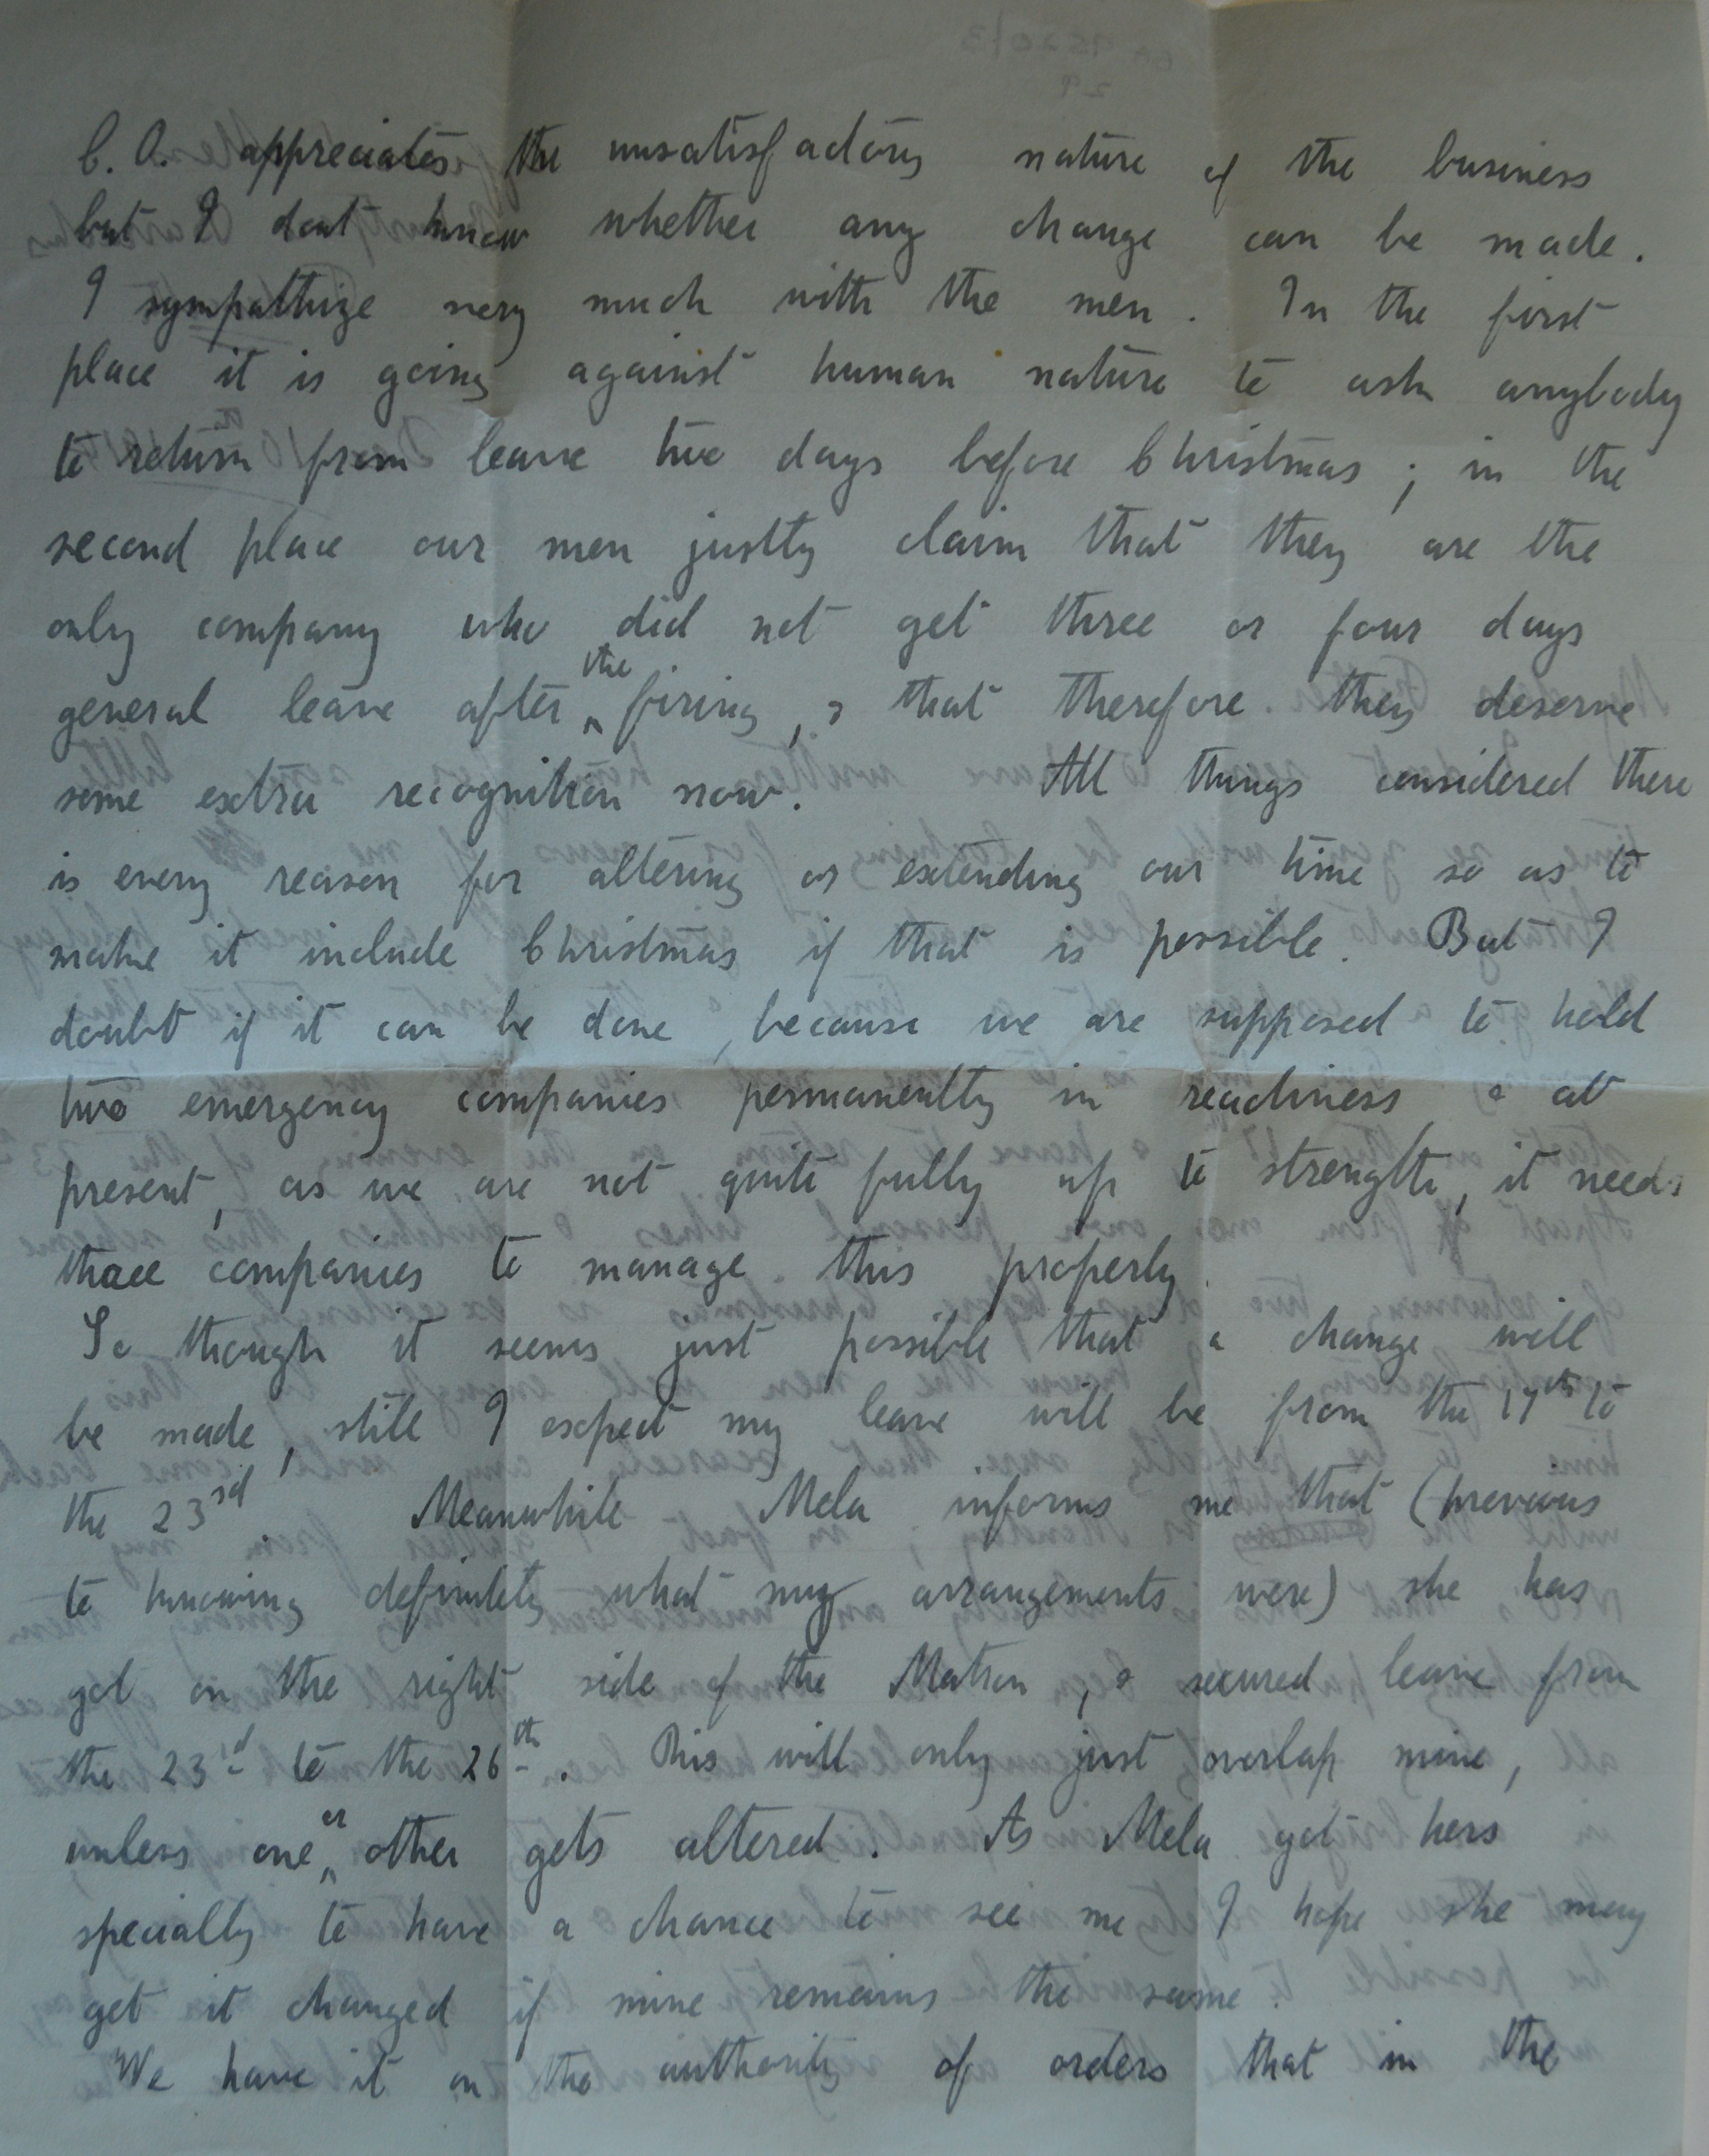 C.O. appreciates the unsatisfactory nature of the business
but I dont know whether any change can be made.
I sympathize very much with the men. In the first
place it is going against human nature to ask anybody
to return from leave two days before Christmas; in the
second place our men justly claim that they are the
only company who did not get three or four days
general leave after the firing, & that therefore they deserve
some extra recognition now. All things considered there
is every reason for altering or extending our time so as to
make it include Christmas if that is possible. But I
doubt if it can be done, because we are supposed to hold
two emergency companies permanently in readiness & at
present, as we are not quite fully up to strength, it needs
three companies to manage this properly.
So though it seems just possible that a change will
be made, still I expect my leave will be from the 17th to
the 23rd. Meanwhile Mela informs me that (previous
to knowing definitely what my arrangements were) she has
got on the right side of the Matron, & secured leave from
the 23rd to the 26th. This will only just overlap mine,
unless one or other gets altered. As Mela got hers
specially to have a chance to see me I hope she may
get it changed if mine remains the same.
We have it on the authority of orders that in the